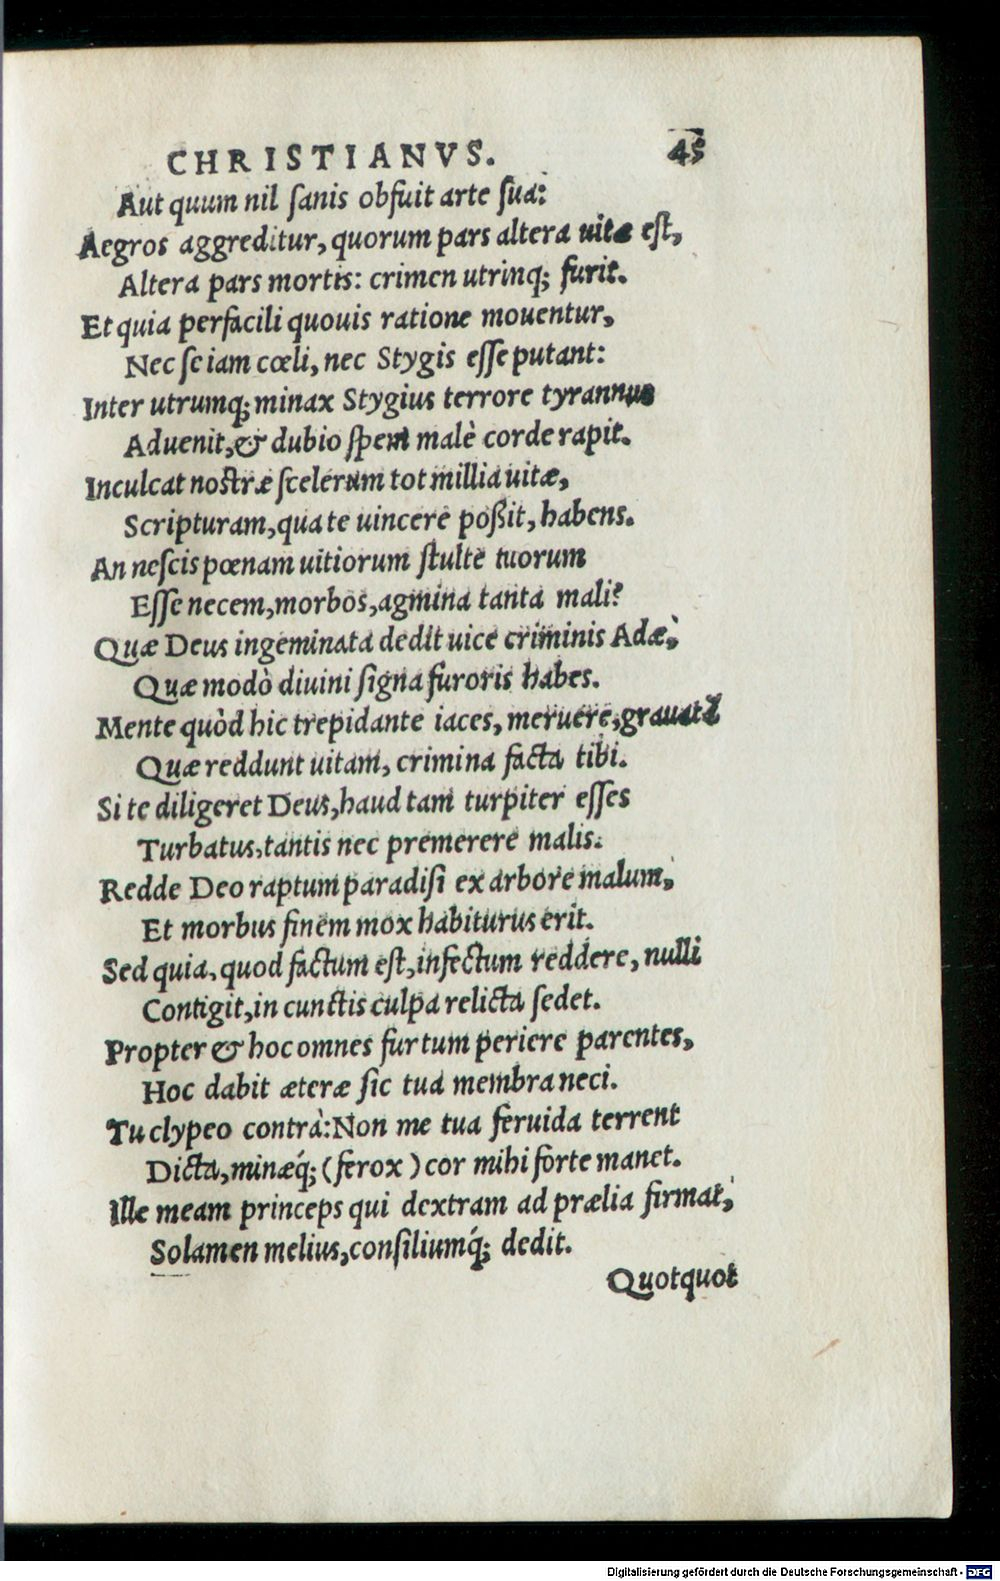 CHRISTIANVS. 45
Aut quum nil ſanis obfuit arte ſua:
Aegros aggreditur, quorum pars altera uitæ eſt,
Altera pars mortis: crimen utrinq; furit.
Et quia perfacili quouis ratione mouentur,
Nec ſe iam cœli, nec Stygis eſſe putant:
Inter utrumq; minax Stygius terrore tyrannus
Aduenit, & dubio ſpem malè corde rapit.
Inculcat noſtræ ſcelerum tot millia uitæ,
Scripturam, qua te uincere poßit, habens.
An neſcis pœnam uitiorum ſtulte tuorum
Eſſe necem, morbos, agmina tanta mali?
Quæ Deus ingeminata dedit uice criminis Adæ,
Quæ modò diuini ſigna furoris habes.
Mente quòd hic trepidante iaces, meruere, grauatã
Quæ reddunt uitam, crimina facta tibi.
Si te diligeret Deus, haud tam turpiter eſſes
Turbatus, tantis nec premerere malis.
Redde Deo raptum paradiſi ex arbore malum,
Et morbus finem mox habiturus erit.
Sed quia, quod factum eſt, infectum reddere, nulli
Contigit, in cunctis culpa relicta ſedet.
Propter & hoc omnes furtum periere parentes,
Hoc dabit æteræ ſic tua membra neci.
Tu clypeo contrà: Non me tua feruida terrent
Dicta, minæq́; (ferox) cor mihi forte manet.
Ille meam princeps qui dextram ad prælia firmat,
Solamen melius, conſiliumq́; dedit.
Quotquot
Digitalisierung gefördert durch die Deutsche Forschungsgemeinschaft - DFG